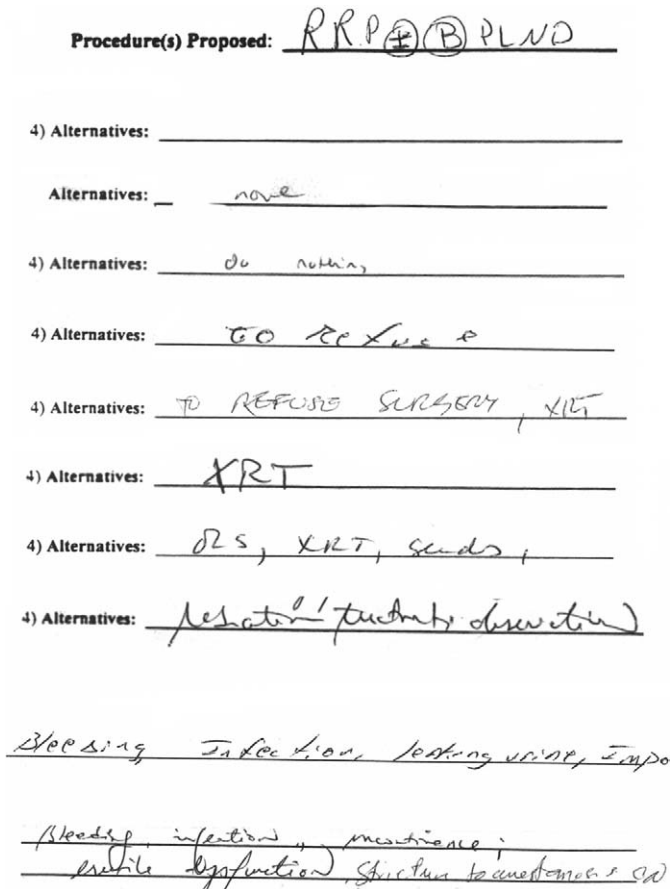 Procedure(s) Proposed: RRP ± B PLND
4) Alternatives:
Alternatives: none
4) Alternatives: do nothing
4) Alternatives: TO Refuse
4) Alternatives: TO REFUSE SURGERY, XRT
4) Alternatives: XRT
4) Alternatives: OBS, XRT, seeds,
4) Alternatives: observation
Bleeding, Infection, leaking urine, Impo
Bleeding, infection, incontinence,
erectile dysfunction, stricture